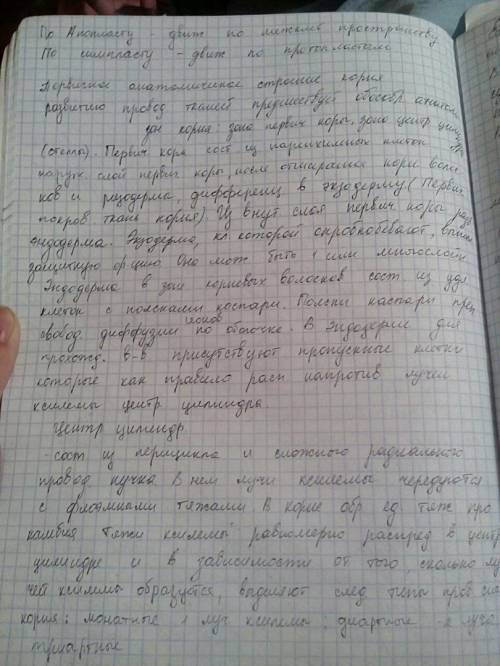 По Апопласту - движ по межклев пространству
По симпласту - движ по протопластам
Первисное анатомическое строение корня
развитию провод тканей предшествует обособл анатом
зон корня: зона первич коры, зона центр цилин
(стеллы). Первич кора сост из паринхимных клеток
наружн слой первич коры, после отмирания корн волос
ков и ризодерма, дифференц в экзодерму (Первич
покров ткань корня). Из внут слоя первич коры разв
эндодерма. Экзодерма, кл. которой опробковевают, вып
защитную ф-цию Она мож быть 1 или многослойн
Эндодерма в зоне корневых волосков сост из удл
клеток с поясками каспари. Пояски каспари преп
ствовод диффузии ионов по оболочке. В Эндодерме для
прохожд. в-в присутствуют пропускные клетки
которые как правило расп напротив лучей
ксилемы центр цилиндра.
Центр цилиндр
-сост из перицикла и сложного радиального
провод пучка. В нем лучи ксилемы чередуются
с флоэмными тяжами. В корне обр ед. тяж про
камбия тяжи ксилемы равномерно распред в центр
цилиндре и в зависимости от того, сколько лу
чей ксилемы образуется, выделяют след типы пров
корня: монатные 1 луч ксилемы; диархные -2 луча
триархные